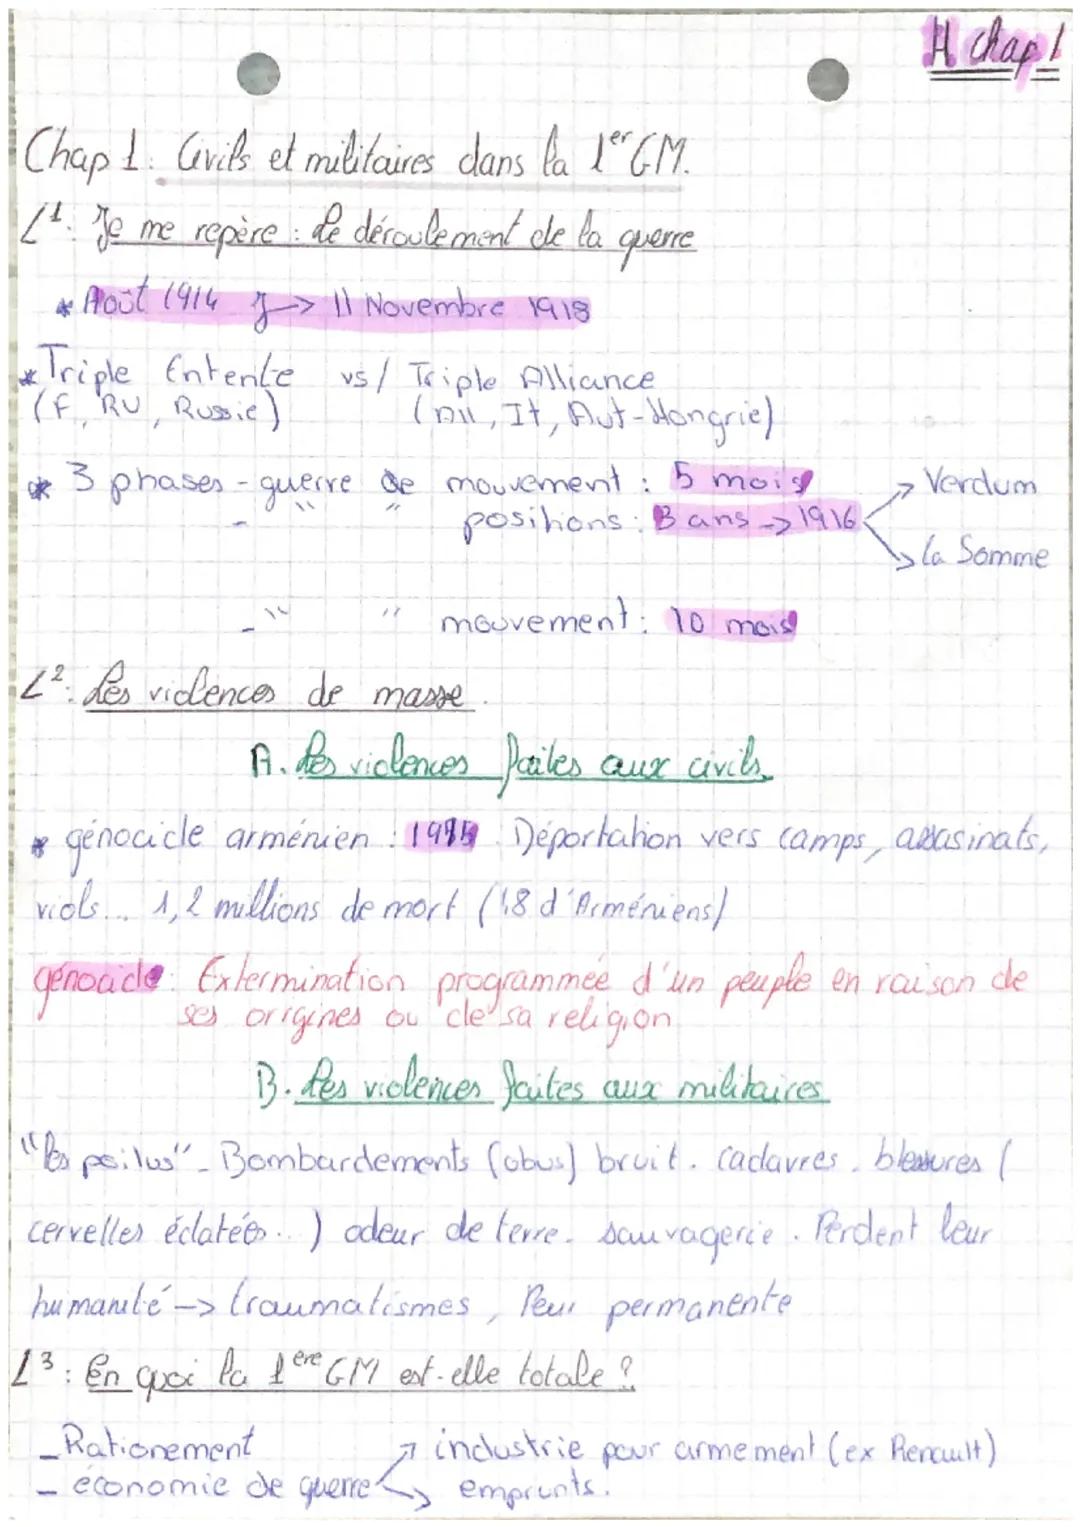 H chap 1
Chap 1: Civils et militaires dans la 1er GM.
L1: Je me repère : le déroulement de la guerre
* Août 1914 → 11 Novembre 1918
* Triple Entente vs/ Triple Alliance
(F, RU, Russie) (All, It, Aut-Hongrie)
* 3 phases - guerre de mouvement : 5 mois → Verdum
- " " positions : 3 ans → 1916
→ la Somme
- " " mouvement : 10 mois
L2: Les violences de masse.
A. Les violences faites aux civils
* génocide arménien : 1915 Déportation vers camps, assasinats,
viols... 1,2 millions de mort (1,8 d'Arméniens)
génocide : Extermination programmée d'un peuple en raison de
ses origines ou de sa religion
B. Les violences faites aux militaires
"les poilus" - Bombardements (obus) bruit. cadavres. blessures (
cervelles éclatées...) odeur de terre. sauvagerie. Perdent leur
humanité -> traumatismes, Peur permanente
L3: En quoi la 1ère GM est-elle totale ?
- Rationement → industrie pour armement (ex Renault)
- économie de guerre → emprunts.